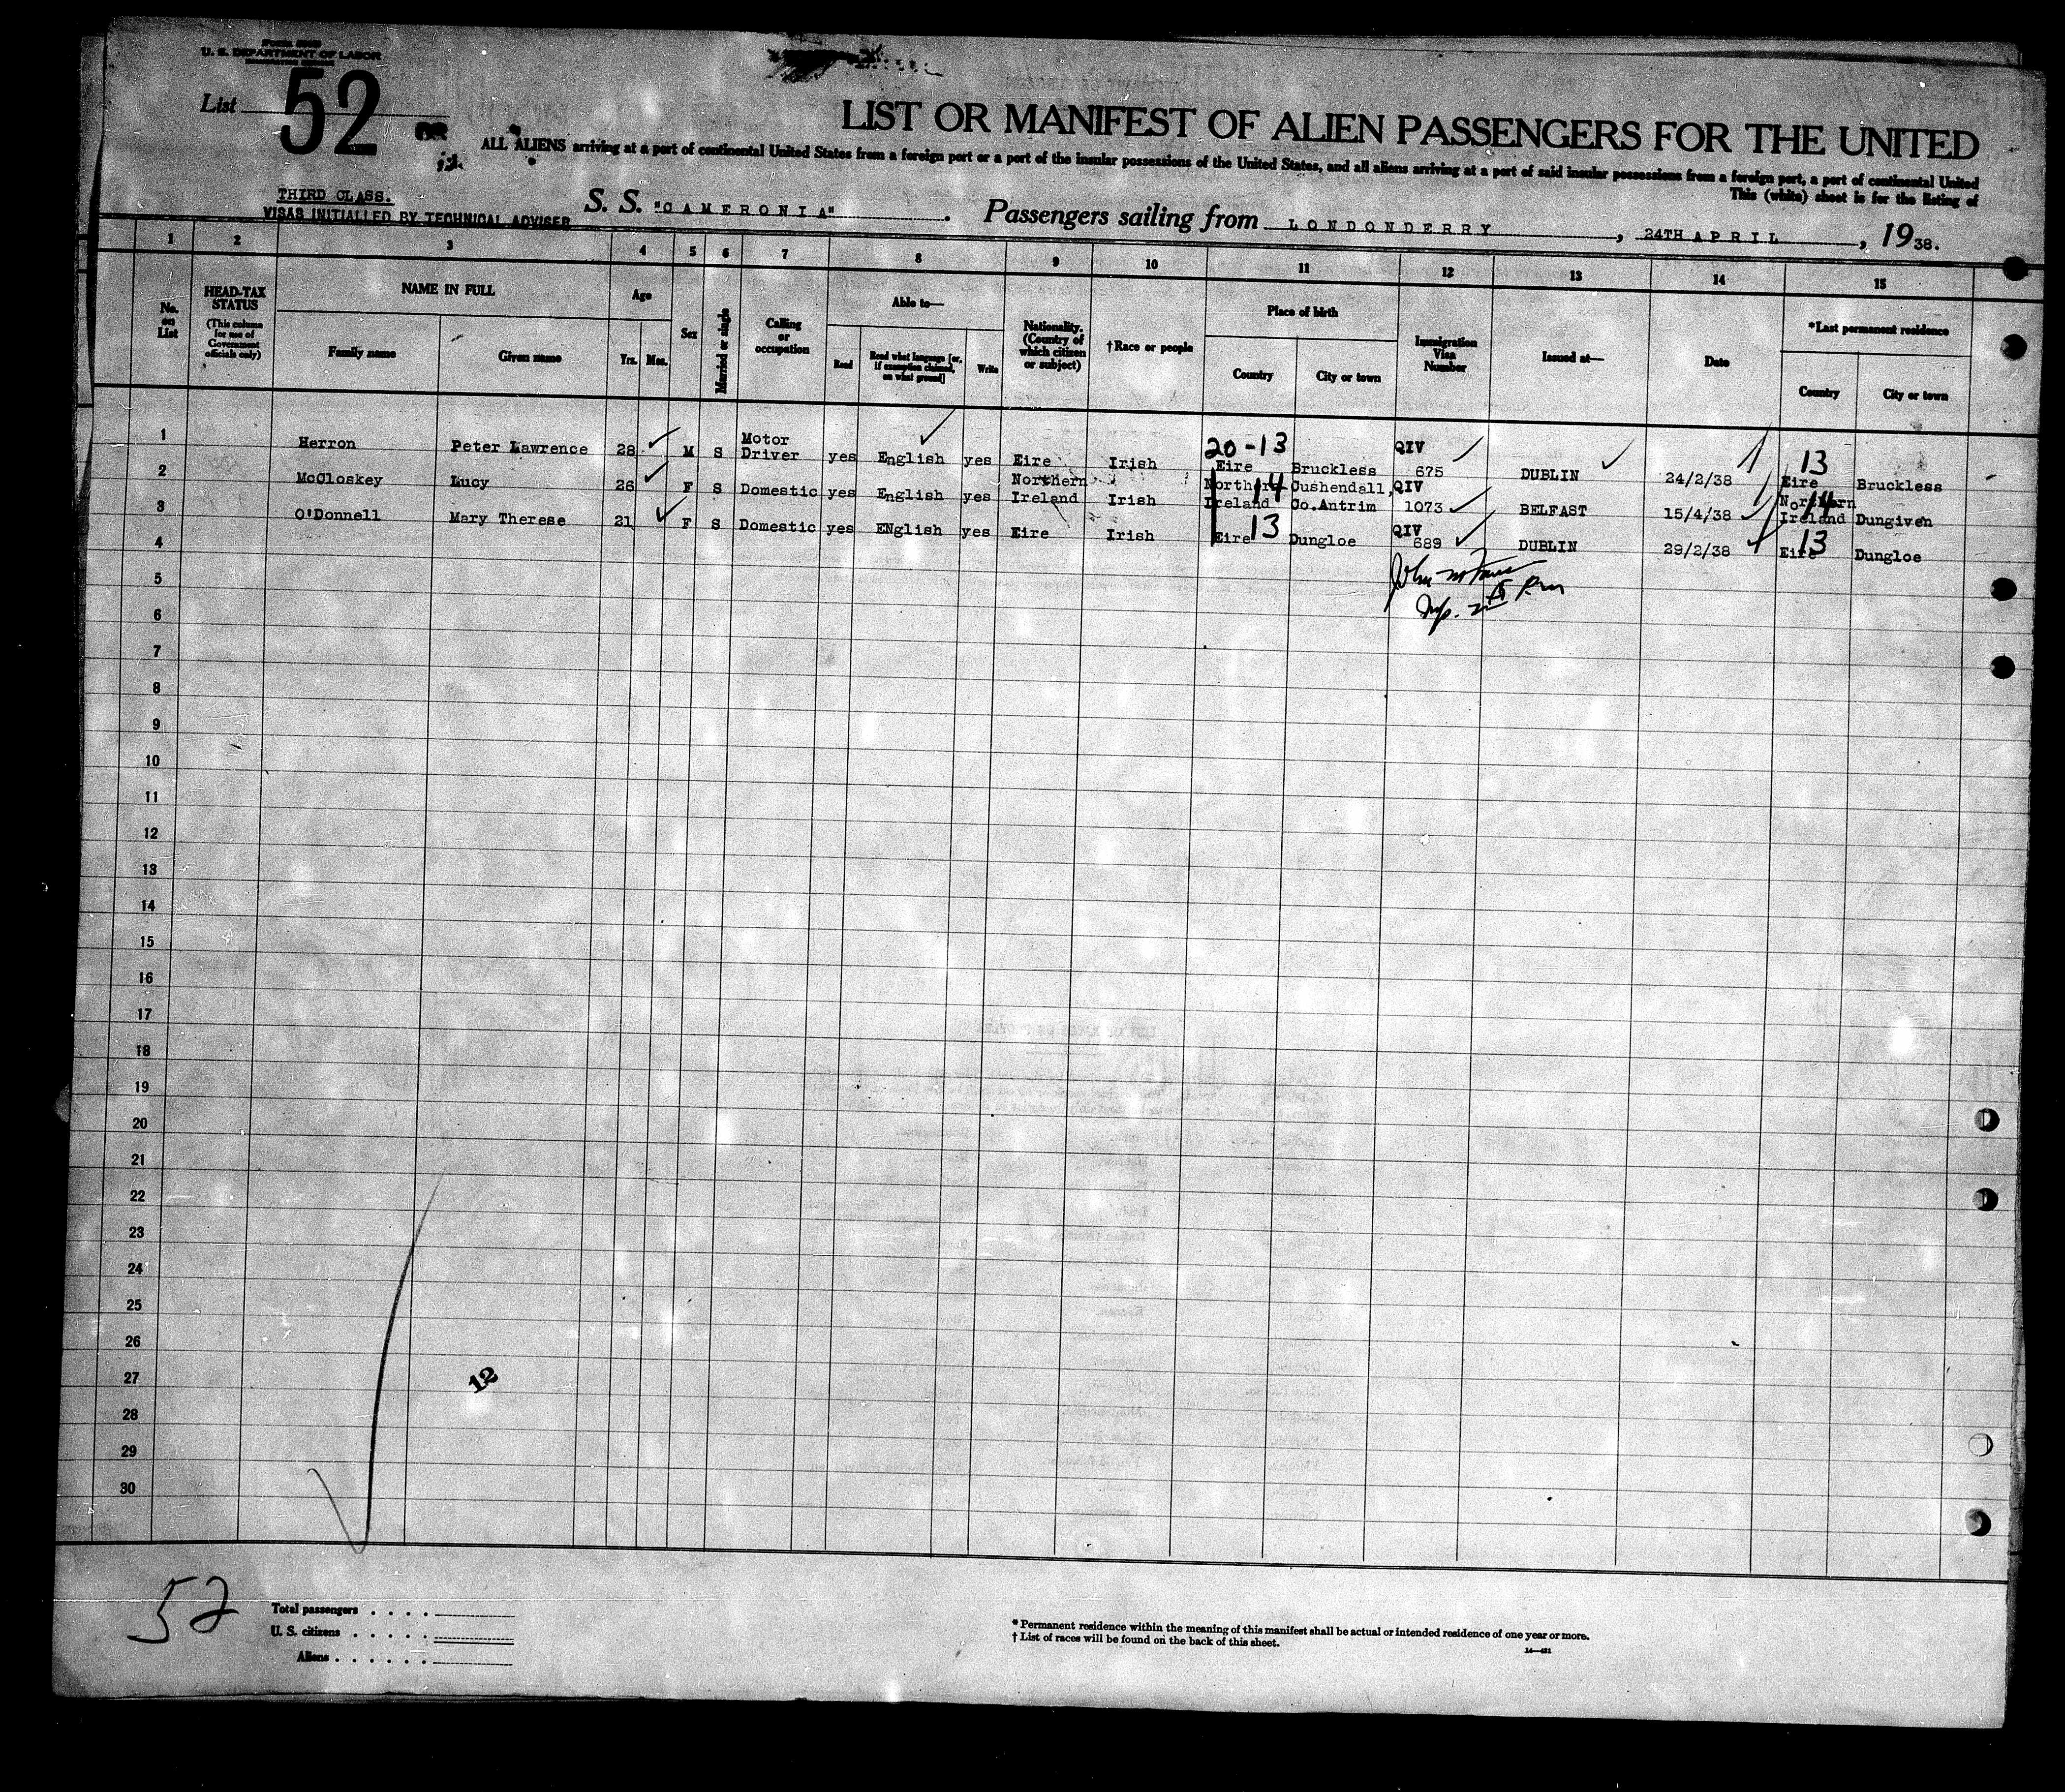 U. S. DEPARTMENT OF LABOR
List 52
LIST OR MANIFEST OF ALIEN PASSENGERS FOR THE UNITED
ALL ALIENS arriving at a port of continental United States from a foreign port or a port of the insular possessions of the United States, and all aliens arriving at a port of said insular possessions from a foreign port, a port of continental United
This (white) sheet is for the listing of
THIRD CLASS.
VISAS INITIALLED BY TECHNICAL ADVISER
S. S. "CAMERONIA". Passengers sailing from LONDONDERRY, 24TH APRIL, 1938.
1 2 3 4 5 6 7 8 9 10 11 12 13 14 15
No. on List
HEAD-TAX STATUS
(This column for use of Government officials only)
NAME IN FULL
Family name
Given name
Age
Yrs. Mos.
Sex
Married or single
Calling or occupation
Able to—
Read
Read what language [or, if exemption claimed, on what ground]
Write
Nationality. (Country of which citizen or subject)
†Race or people
Place of birth
Country
City or town
Immigration Visa Number
Issued at—
Date
*Last permanent residence
Country
City or town
1 Herron Peter Lawrence 28 M S Motor Driver yes English yes Eire Irish 20-13 Eire Bruckless QIV 675 DUBLIN 24/2/38 13 Eire Bruckless
2 McCloskey Lucy 26 F S Domestic yes English yes Northern Ireland Irish 14 Northern Ireland Cushendall, Co.Antrim QIV 1073 BELFAST 15/4/38 14 Northern Ireland Dungiven
3 O'Donnell Mary Therese 21 F S Domestic yes ENglish yes Eire Irish 13 Eire Dungloe QIV 689 DUBLIN 29/2/38 13 Eire Dungloe
4
5
6
7
8
9
10
11
12
13
14
15
16
17
18
19
20
21
22
23
24
25
26
27
12
28
29
30
52
Total passengers . . . .
U. S. citizens . . . . .
Aliens . . . . . .
* Permanent residence within the meaning of this manifest shall be actual or intended residence of one year or more.
† List of races will be found on the back of this sheet.